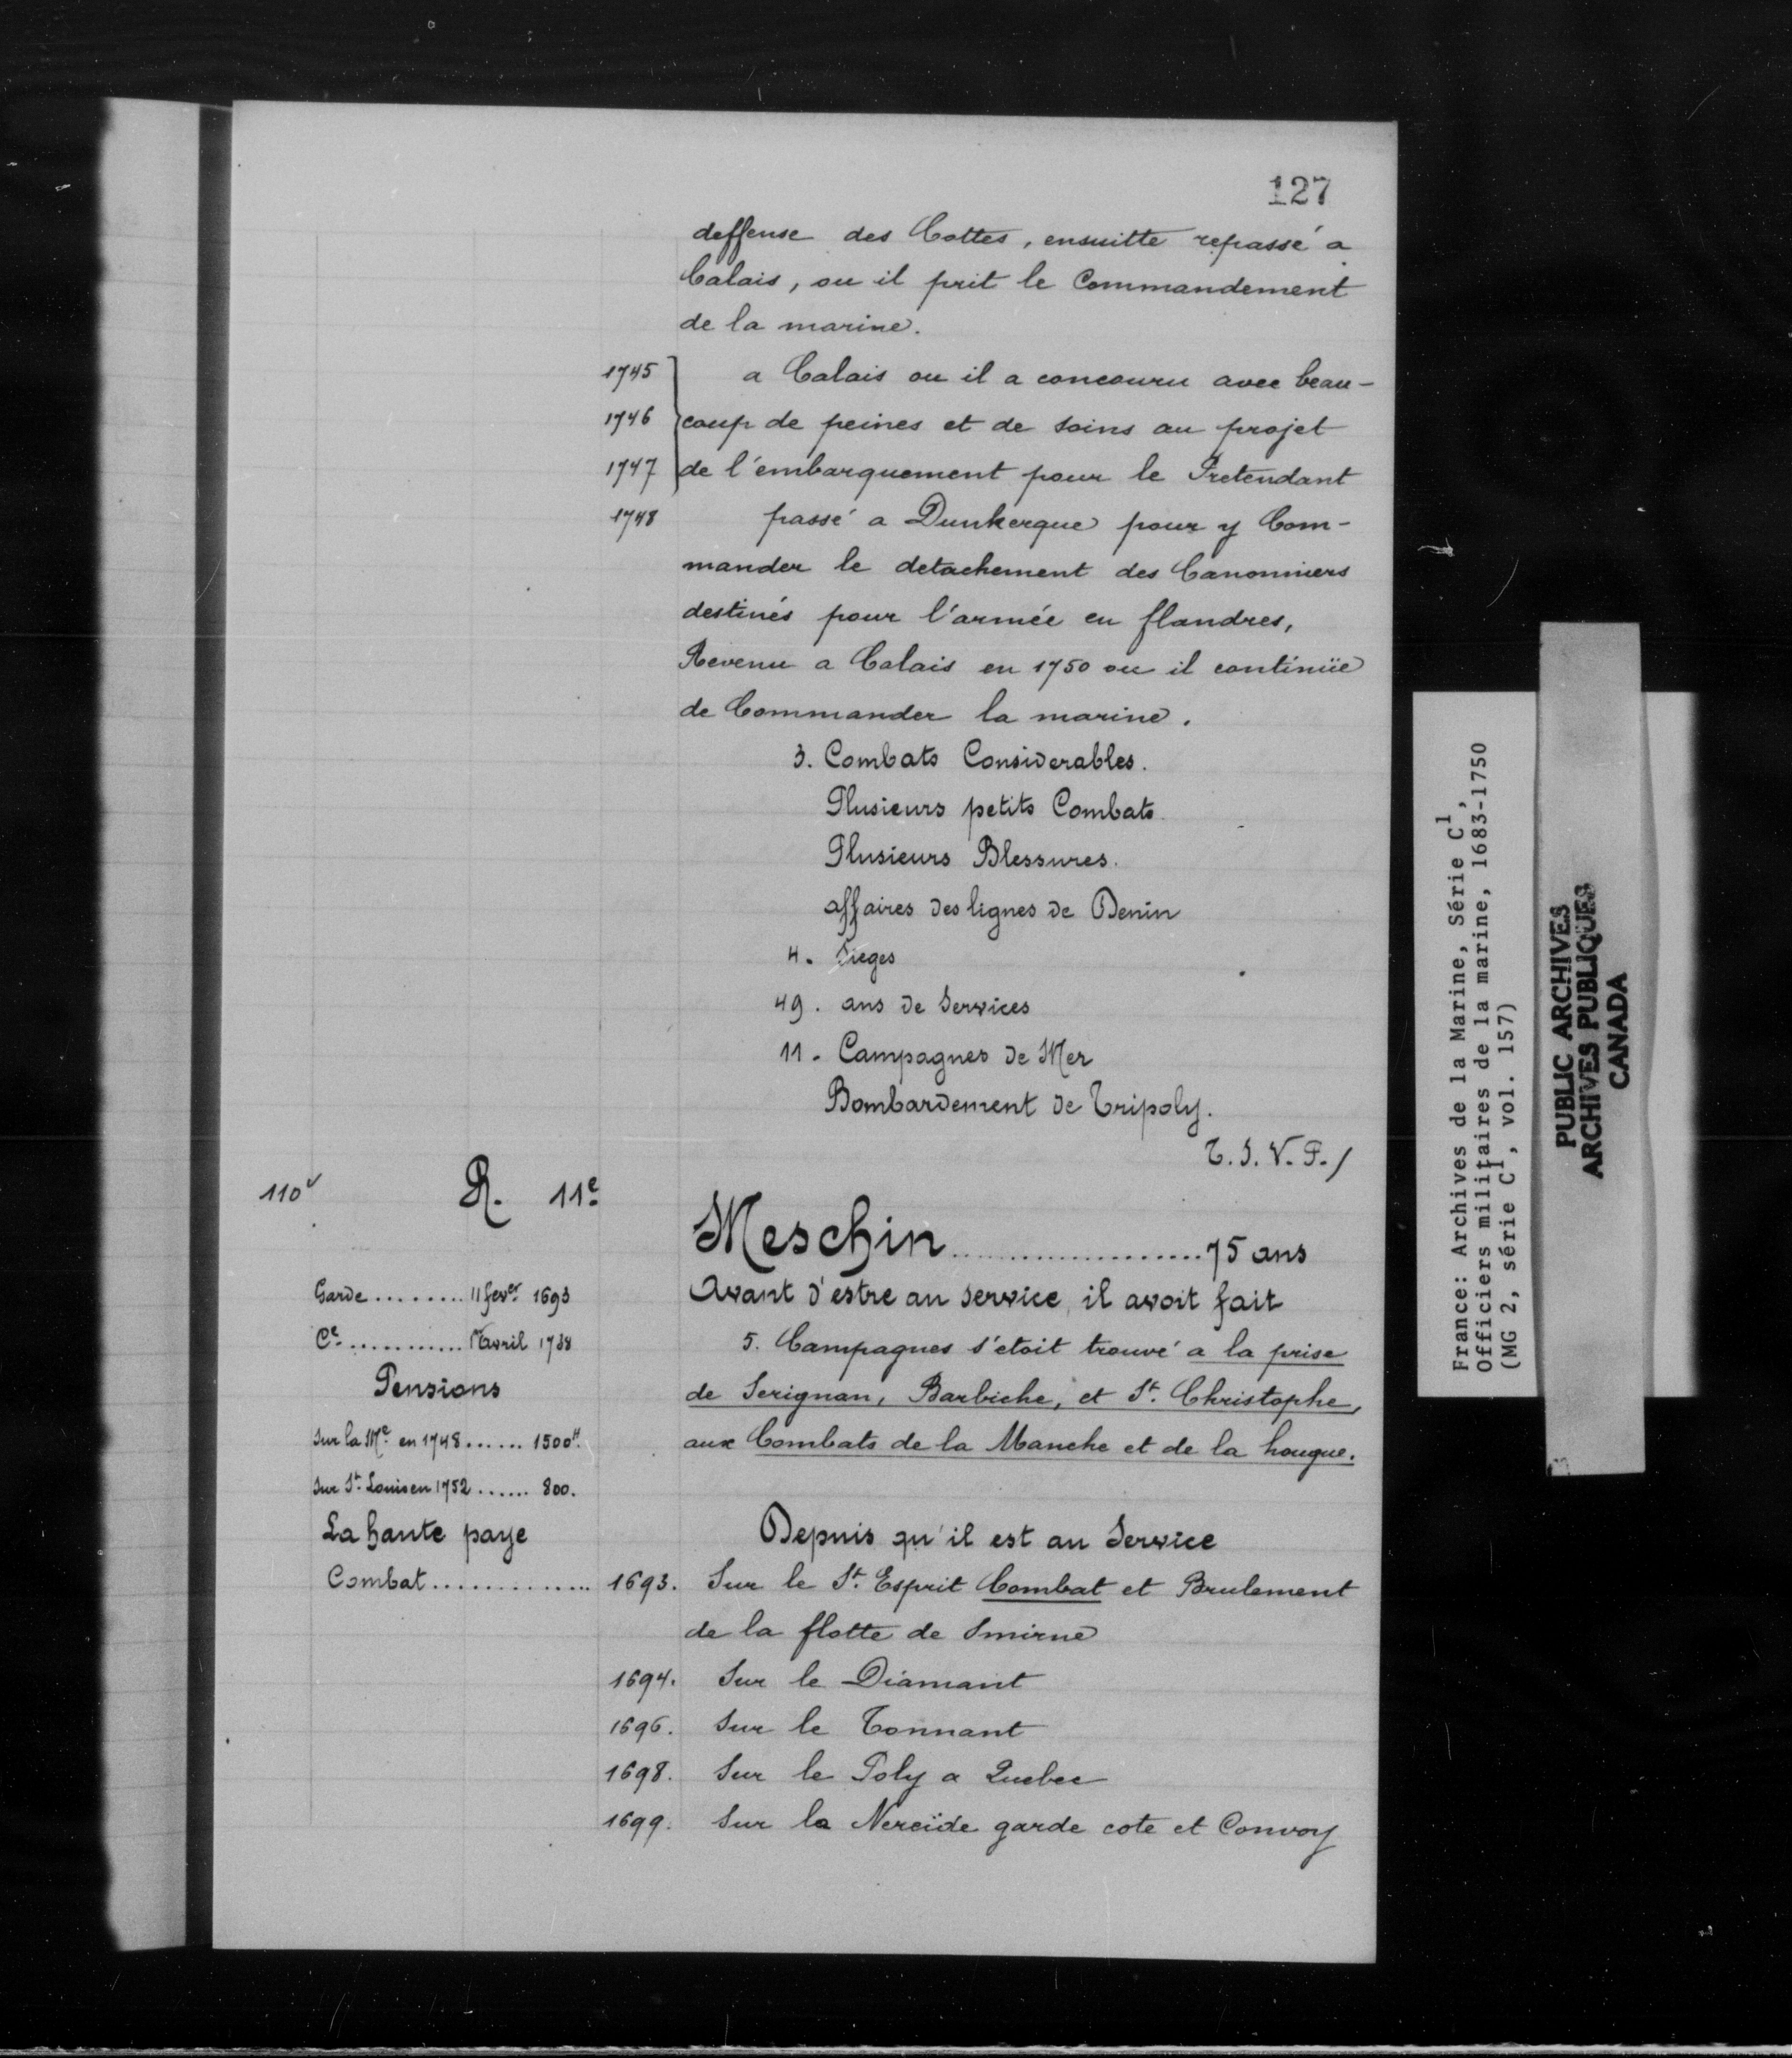 127
deffense des Cottes, ensuitte repassé a
Calais, ou il prit le Commandement
de la marine.
1745 a Calais ou il a concouru avec beau-
1746 coup de peines et de soins au projet
1747 de l'embarquement pour le Pretendant
1748 passé a Dunkerque pour y Com-
mander le detachement des Canonniers
destinés pour l'armée en flandres,
Revenu a Calais en 1750 ou il continüe
de Commander la marine.
3. Combats Considerables.
Plusieurs petits Combats.
Plusieurs Blessures.
affaires des lignes de Denin
4. Sieges
49. ans de Services
11. Campagnes de Mer
Bombardement de Tripoly.
T. S. V. P. /
110v R. 11e
Meschin.....................75 ans
Garde........11 fever 1693
Avant d'estre au service, il avoit fait
Ce...........1er avril 1738
5. Campagnes s'étoit trouvé a la prise
Pensions
de Serignan, Barbiche, et St. Christophe,
Sur la Me en 1748......1500#.
aux Combats de la Manche et de la hougue.
Sur St. Louis en 1752......800.
La haute paye
Depuis qu'il est au Service
Combat..............1693. Sur le St. Esprit Combat et Brulement
de la flotte de Smirne
1694. Sur le Diamant
1696. Sur le Tonnant
1698. Sur le Poly a Quebec
1699. Sur la Nereïde garde cote et Convoy
France: Archives de la Marine, Série C1,
Officiers militaires de la marine, 1683-1750
(MG 2, série C1, vol. 157)
PUBLIC ARCHIVES
ARCHIVES PUBLIQUES
CANADA